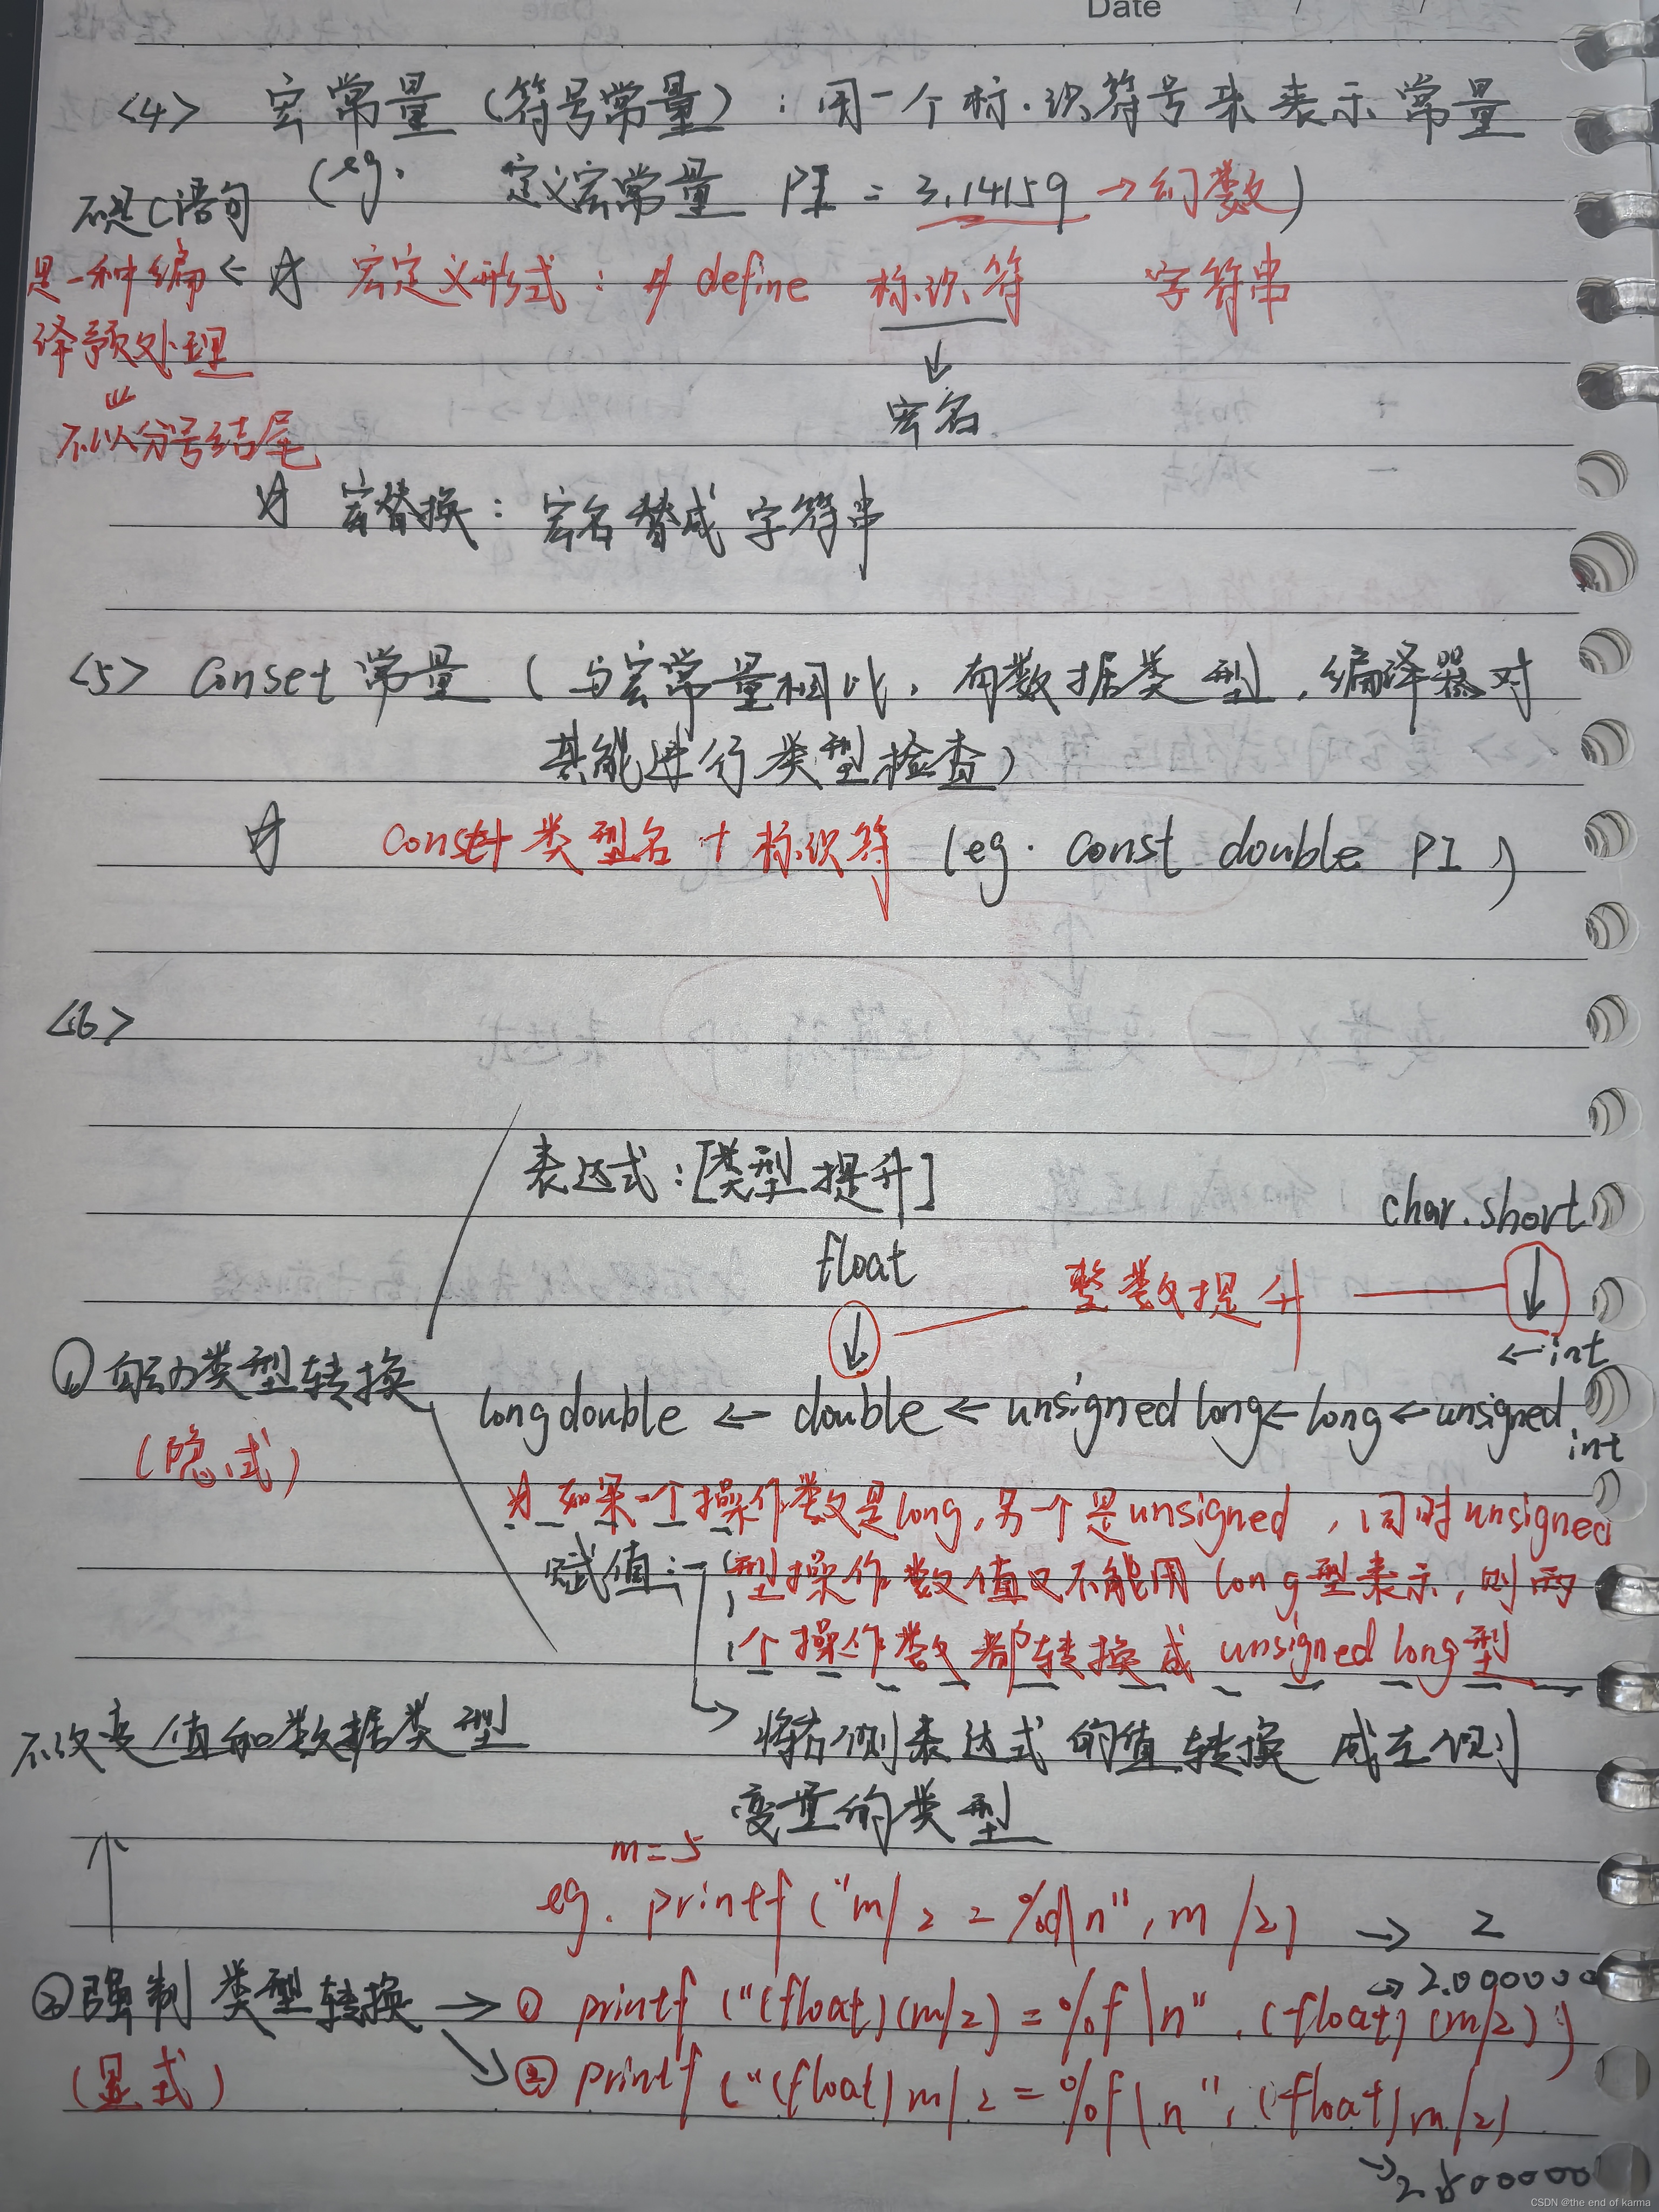 Date / /
<4> 宏常量(符号常量):用一个标识符号来表示常量
(eg. 定义宏常量 PI = 3.14159 → 幻数)
不是C语句
是一种编译预处理
⇓
不以分号结尾
← ☆ 宏定义形式: # define 标识符 字符串
↓
宏名
☆ 宏替换: 宏名替成字符串
<5> Conset 常量(与宏常量相比,有数据类型,编译器对
其能进行类型检查)
☆ Const+类型名+标识符 (eg. const double PI)
<6>
表达式:[类型提升]
char.short
float
整数提升
↓
↓
←int
①自动类型转换
(隐式)
long double ← double ← unsigned long ← long ← unsigned int
☆ 如果一个操作数是long,另一个是unsigned,同时unsigned
型操作数值又不能用long型表示,则两
个操作数都转换成 unsigned long型
赋值:
→ 将右侧表达式的值转换成左侧
变量的类型
不改变值和数据类型
↑
m=5
eg. printf("m/2=%d\n",m/2) → 2
②强制类型转换
(显式)
→ ① printf("(float)(m/2)=%f\n",(float)(m/2))
→2.000000
→ ② printf("(float)m/2=%f\n",(float)m/2)
→2.500000
CSDN @the end of karma